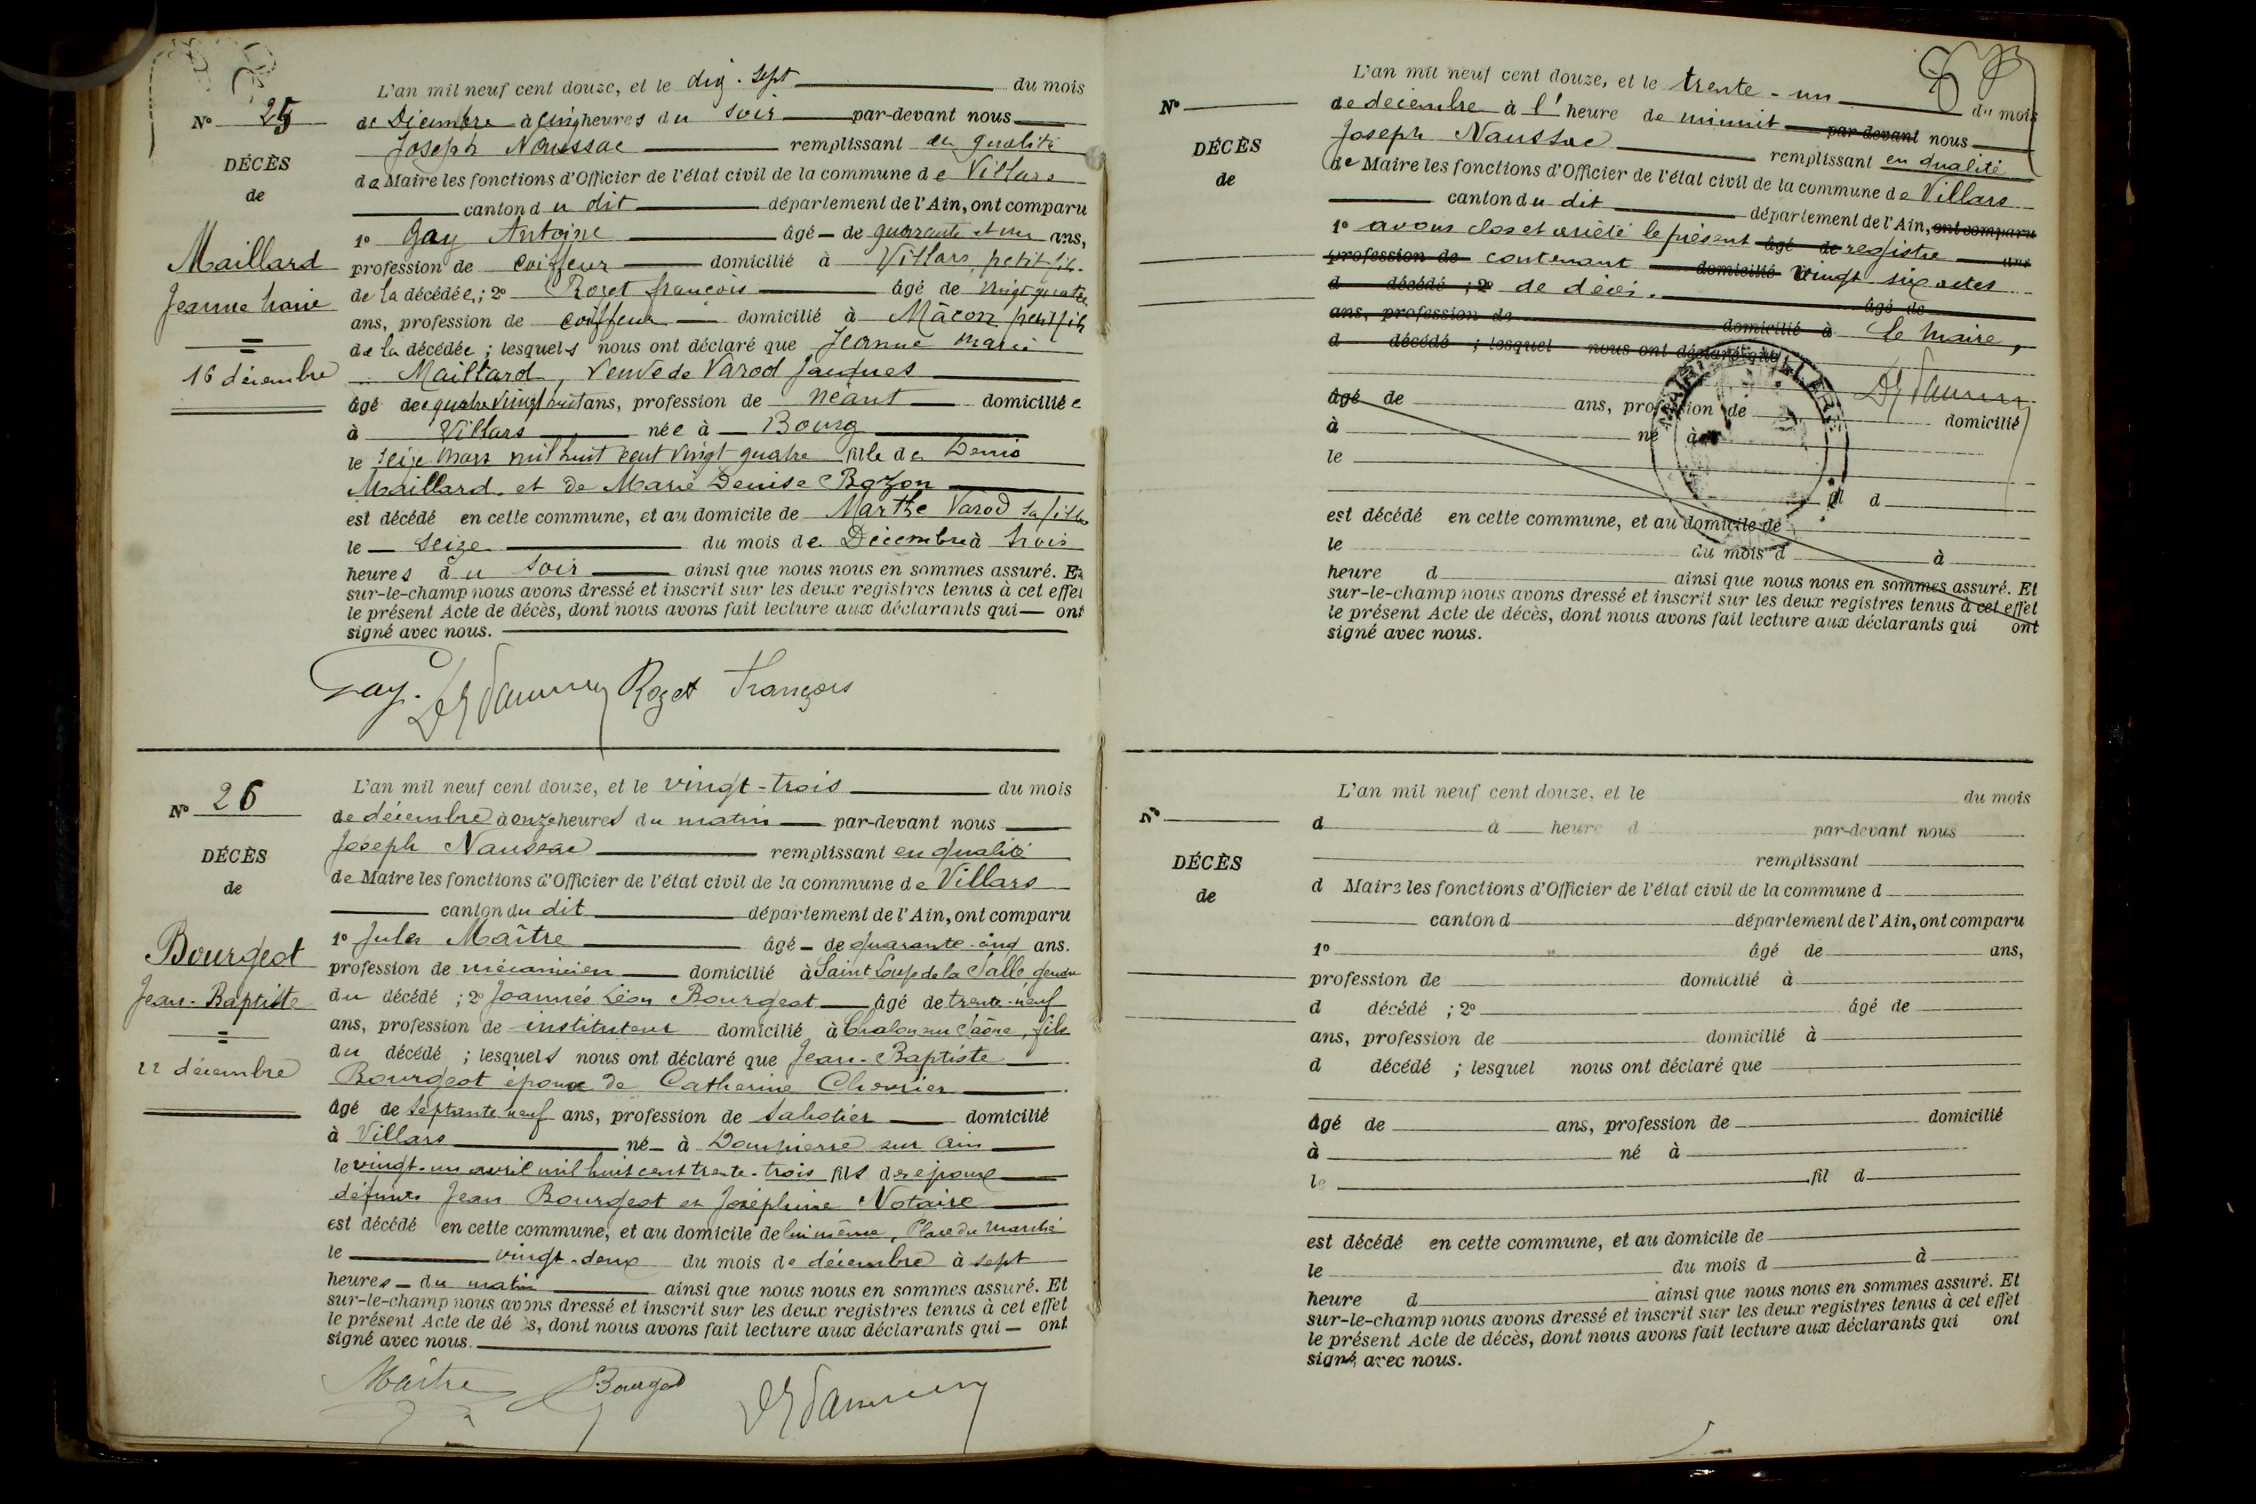 N° 25
DÉCÈS
de
Maillard
Jeanne Marie
16 décembre
L'an mil neuf cent douze, et le dix-sept du mois
de Décembre à cinq heures du soir par-devant nous
Joseph Naussac remplissant en qualité
de Maire les fonctions d'Officier de l'état civil de la commune de Villars
canton du dit département de l'Ain, ont comparu
1° Gay Antoine âgé de quarante et un ans,
profession de coiffeur domicilié à Villars, petit fils
de la décédée ; 2° Rozet françois âgé de vingt quatre
ans, profession de coiffeur domicilié à Mâcon petit fils
de la décédée ; lesquels nous ont déclaré que Jeanne Marie
Maillard, Veuve de Varod Jacques
âgée de quatre vingt huit ans, profession de néant domiciliée
à Villars née à Bourg
le seize Mars mil huit cent vingt quatre fille de Denis
Maillard et de Marie Denise Bozon
est décédé en cette commune, et au domicile de Marthe Varod sa fille
le seize du mois de Décembre à trois
heures du soir ainsi que nous nous en sommes assuré. Et
sur-le-champ nous avons dressé et inscrit sur les deux registres tenus à cet effet
le présent Acte de décès, dont nous avons fait lecture aux déclarants qui ont
signé avec nous.
Gay. Rozet François
N° 26
DÉCÈS
de
Bourgeot
Jean-Baptiste
22 décembre
L'an mil neuf cent douze, et le vingt-trois du mois
de décembre à onze heures du matin par-devant nous
Joseph Naussac remplissant en qualité
de Maire les fonctions d'Officier de l'état civil de la commune de Villars
canton du dit département de l'Ain, ont comparu
1° Jules Maître âgé de quarante-cinq ans.
profession de mécanicien domicilié à Saint Loup de la Salle, gendre
du décédé ; 2° Joannés Léon Bourgeot âgé de trente-neuf
ans, profession de instituteur domicilié à Chalon sur Saône, fils
du décédé ; lesquels nous ont déclaré que Jean-Baptiste
Bourgeot époux de Catherine Chevrier
âgé de septante neuf ans, profession de sabotier domicilié
à Villars né à Dompierre sur Ain
le vingt-un avril mil huit cent trente-trois fils des époux
défunts Jean Bourgeot et Joséphine Notaire
est décédé en cette commune, et au domicile de lui même, Place du Marché
le vingt-deux du mois de décembre à sept
heures du matin ainsi que nous nous en sommes assuré. Et
sur-le-champ nous avons dressé et inscrit sur les deux registres tenus à cet effet
le présent Acte de dé s, dont nous avons fait lecture aux déclarants qui ont
signé avec nous.
Maître Bourgeot
N°
DÉCÈS
de
L'an mil neuf cent douze, et le trente-un du mois
de décembre à l'heure de minuit par-devant nous
Joseph Naussac remplissant en qualité
de Maire les fonctions d'Officier de l'état civil de la commune de Villars
canton du dit département de l'Ain, ont comparu
1° avons clos et arrêté le présent âgé de registre ans
profession de contenant domicilié vingt six actes
d décédé ; 2° de décès. âgé de
ans, profession de domicilié à Le Maire,
d décédé ; lesquel nous ont déclaré que
âgé de ans, profession de domicilié
à né à
le
fil d
est décédé en cette commune, et au domicile de
le du mois d à
heure d ainsi que nous nous en sommes assuré. Et
sur-le-champ nous avons dressé et inscrit sur les deux registres tenus à cet effet
le présent Acte de décès, dont nous avons fait lecture aux déclarants qui ont
signé avec nous.
N°
DÉCÈS
de
L'an mil neuf cent douze, et le du mois
d à heure d par-devant nous
remplissant
d Maire les fonctions d'Officier de l'état civil de la commune d
canton d département de l'Ain, ont comparu
1° âgé de ans,
profession de domicilié à
d décédé ; 2° âgé de
ans, profession de domicilié à
d décédé ; lesquel nous ont déclaré que
âgé de ans, profession de domicilié
à né à
le fil d
est décédé en cette commune, et au domicile de
le du mois d à
heure d ainsi que nous nous en sommes assuré. Et
sur-le-champ nous avons dressé et inscrit sur les deux registres tenus à cet effet
le présent Acte de décès, dont nous avons fait lecture aux déclarants qui ont
signé avec nous.